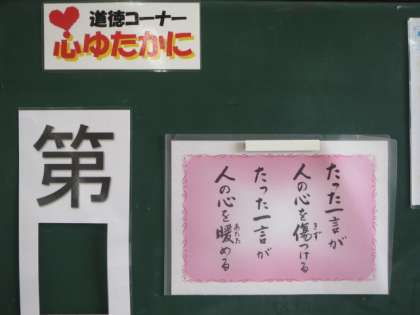 道徳コーナー
心ゆたかに
第
たった一言が
人の心を傷つける
たった一言が
人の心を暖める